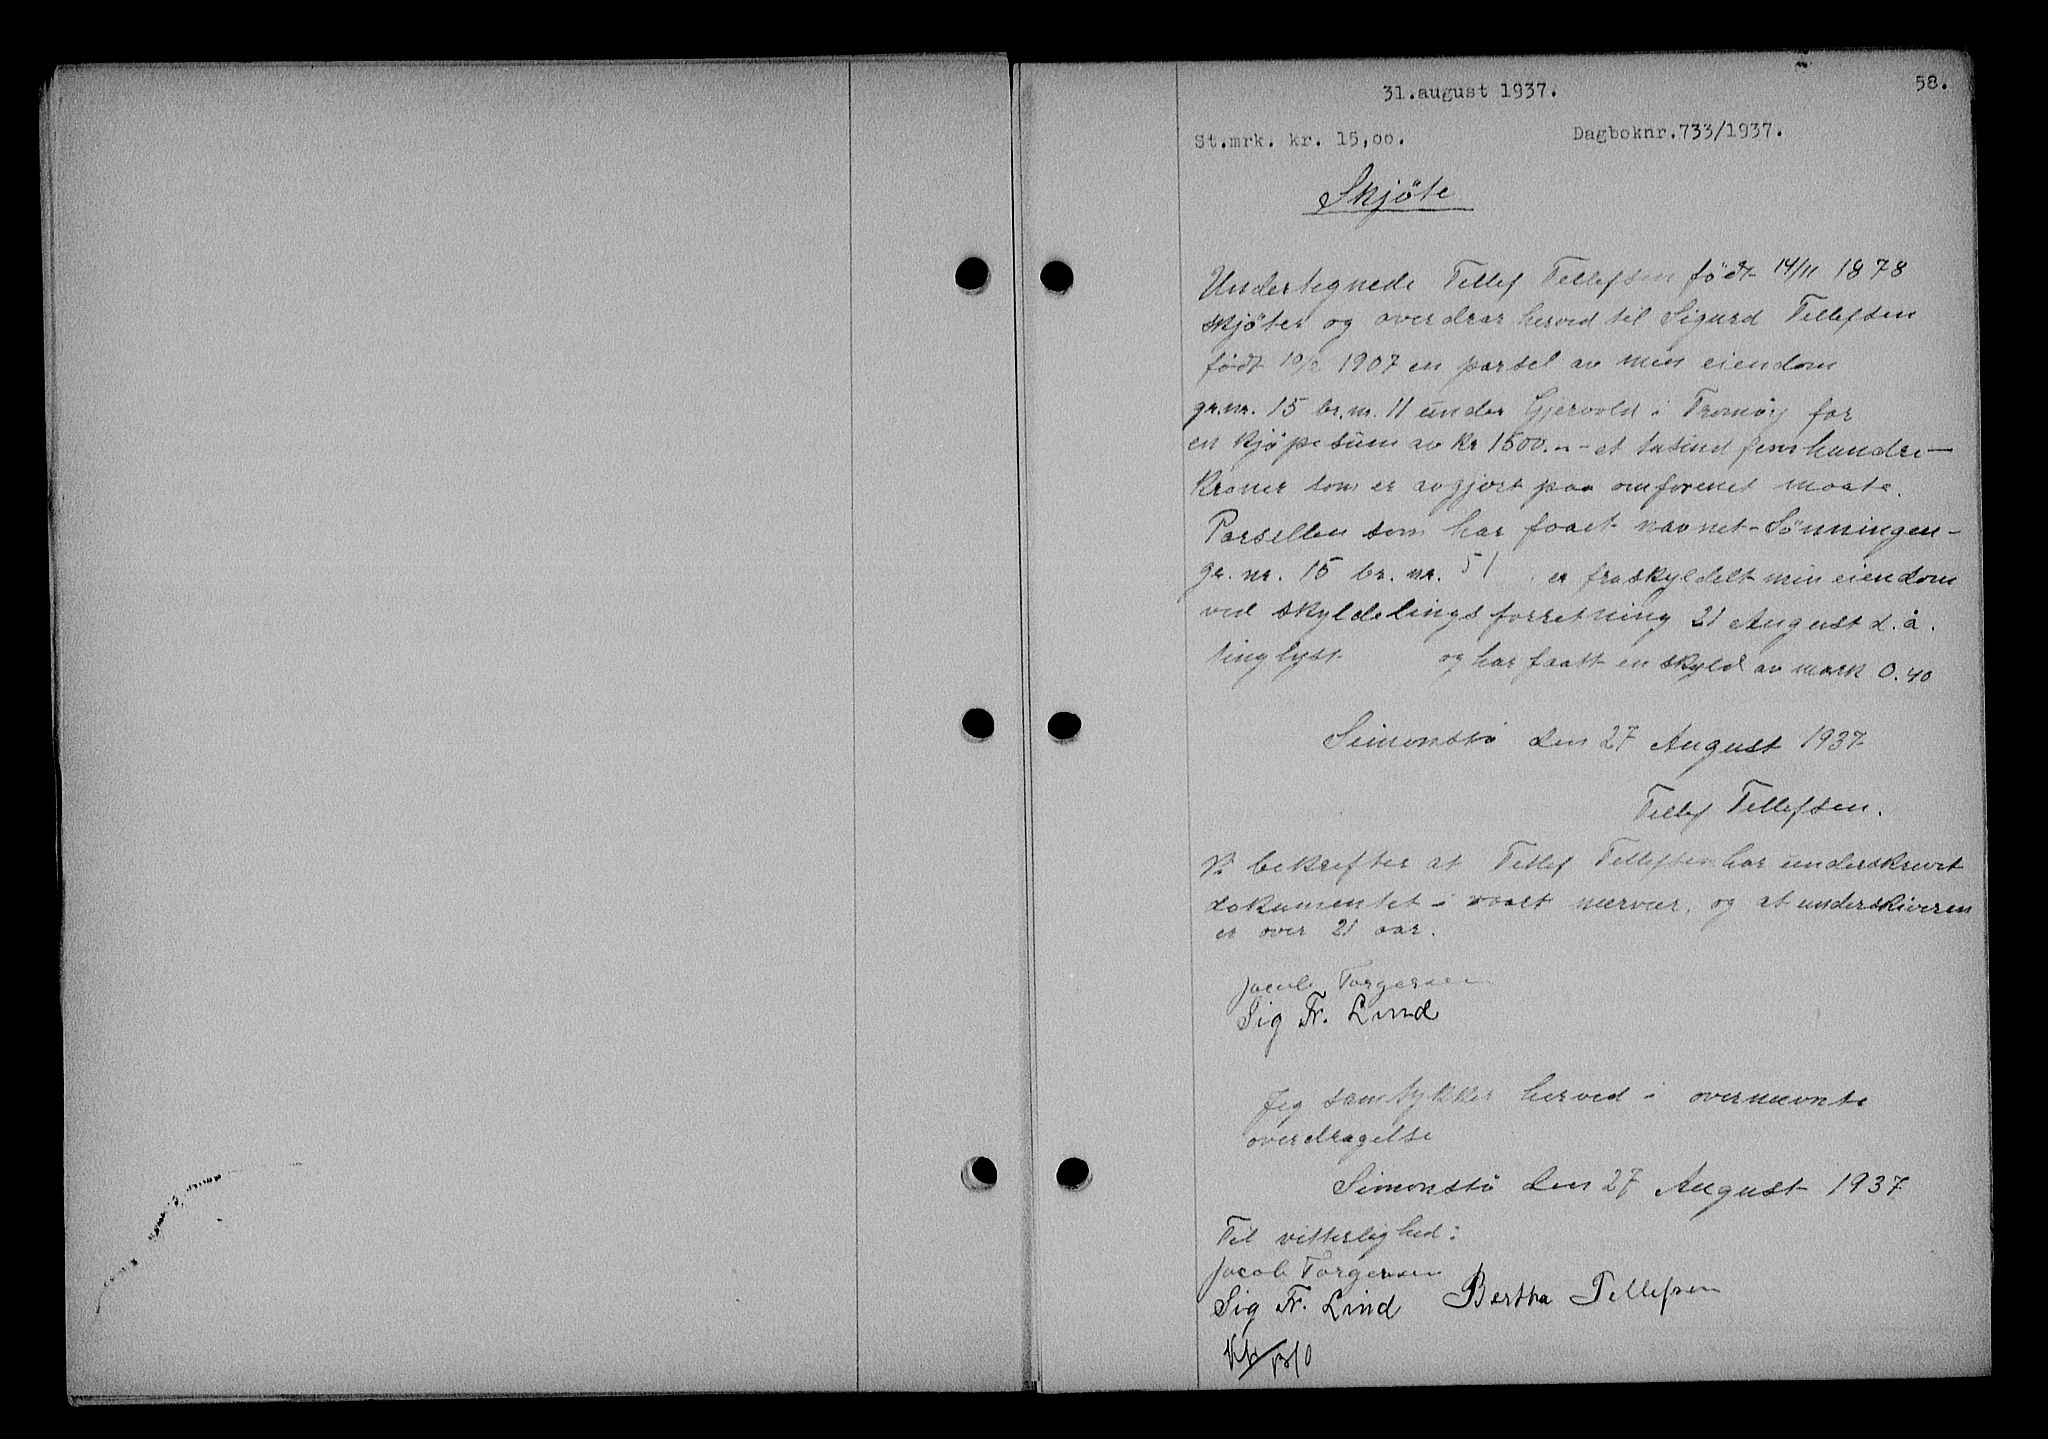 31.august 1937.
58.
St.mrk. kr. 15,00.
Dagboknr.733/1937.
Skjöte
Undertegnede Tellef Tellefsen födt 14/11 1878
skjöter og overdrar herved til Sigurd Tellefsen
födt 10/2 1907 en parsel av min eiendom
gr.nr. 15 br.nr. 11 under Gjervold i Tromöy for
en kjöpesum av kr 1500.-- et tusind fem hundre—
kroner som er avgjort paa omforenet maate.
Parsellen som har faaet navnet - Sönningen -
gr. nr. 15 br. nr. 51 er fraskyldelt min eiendom
ved skyldelingsforretning 21 August d. å.
tinglyst og har faatt en skyld av mark 0.40
Simonstö den 27 August 1937
Tellef Tellefsen.
Vi bekrefter at Tellef Tellefsen har underskrevet
dokumentet i vaart nærvær, og at underskiveren
er over 21 aar.
Jacob Torgersen
Sig Fr. Lind
Jeg samtykker herved i overnævnte
overdragelse
Simonstö den 27 August 1937
Til vitterlighed:
Jacob Torgersen
Sig Fr. Lind Bertha Tellefsen